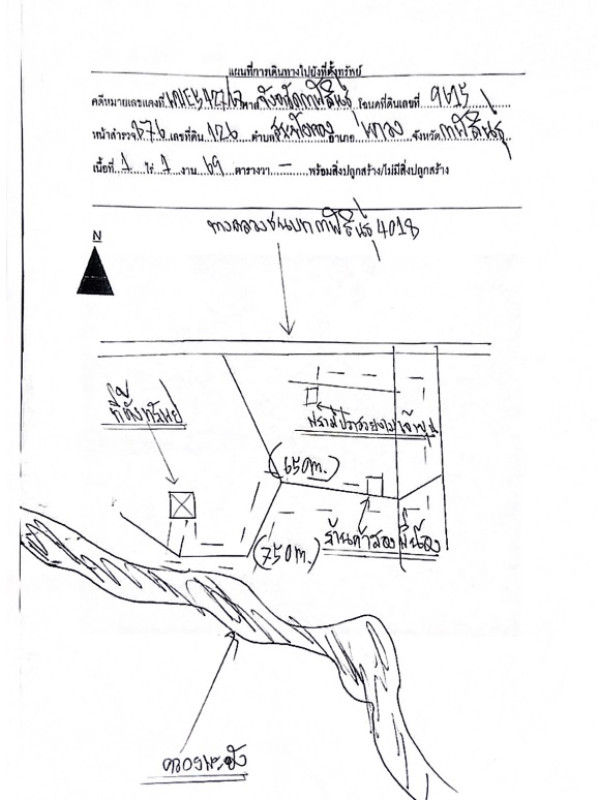 แผนที่การเดินทางไปยังที่ตั้งทรัพย์
คดีหมายเลขแดงที่ ศาล จังหวัดกาฬสินธุ์ โฉนดที่ดินเลขที่ 9615
หน้าสำรวจ 676 เลขที่ดิน 126 ตำบล อำเภอ จังหวัด กาฬสินธุ์
เนื้อที่ 1 ไร่ 1 งาน 69 ตารางวา - พร้อมสิ่งปลูกสร้าง/ไม่มีสิ่งปลูกสร้าง
ทางหลวงชนบท กาฬสินธุ์ 4018
N
ที่ตั้งทรัพย์
(650m.)
(750m.)
ร้านค้าสองพี่น้อง